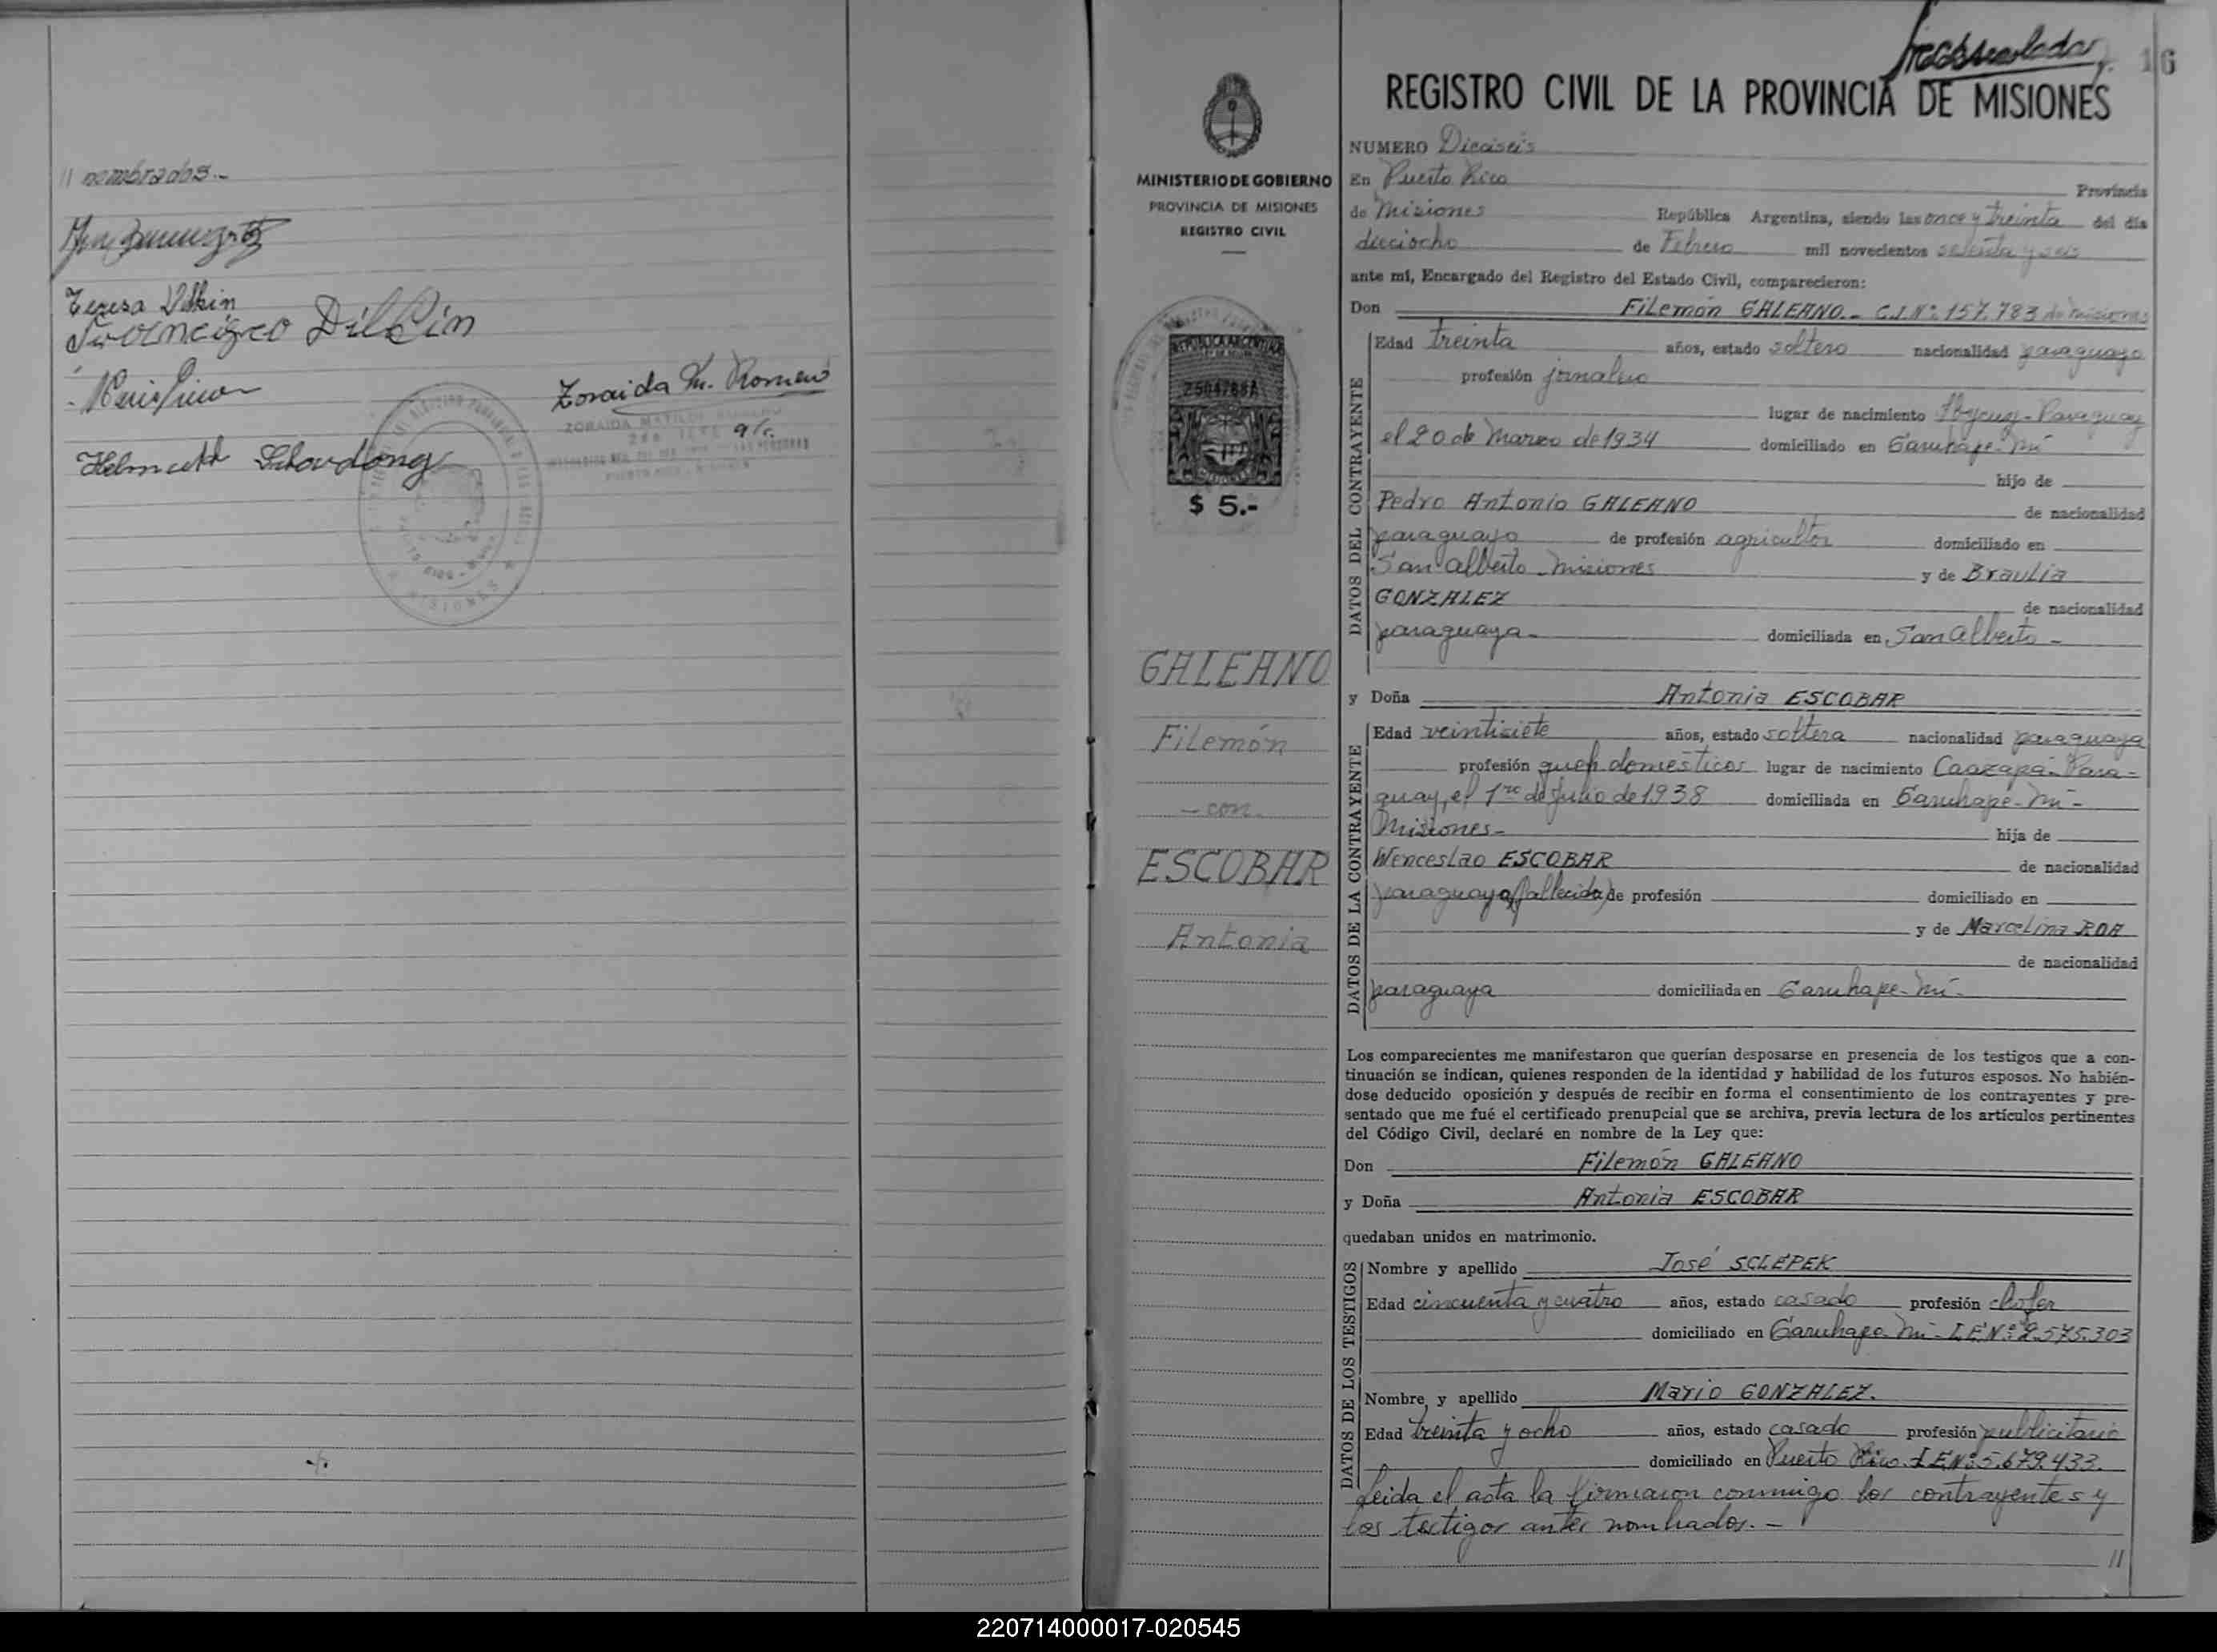 // nombrados.-
Teresa Dilkin
Francisco Dilkin
Zoraida M. Romero
ZORAIDA MATILDE ROMERO
a/c.
Helmuth
MISIONES
MINISTERIO DE GOBIERNO
PROVINCIA DE MISIONES
REGISTRO CIVIL
REPUBLICA ARGENTINA
$ 5.-
GALEANO
Filemón
- con -
ESCOBAR
Antonia
16
REGISTRO CIVIL DE LA PROVINCIA DE MISIONES
NUMERO Dieciseis
En Puerto Rico Provincia
de Misiones República Argentina, siendo las once y treinta del día
dieciocho de Febrero mil novecientos sesenta y seis
ante mí, Encargado del Registro del Estado Civil, comparecieron:
Don Filemón GALEANO.- C.I.Nº 157.783 de Misiones
DATOS DEL CONTRAYENTE
Edad treinta años, estado soltero nacionalidad paraguayo
profesión jornalero
lugar de nacimiento Ybycuy - Paraguay
el 20 de Marzo de 1934 domiciliado en Garuhape-Mí
hijo de
Pedro Antonio GALEANO de nacionalidad
paraguayo de profesión agricultor domiciliado en
San Alberto Misiones y de Braulia
GONZALEZ de nacionalidad
paraguaya- domiciliada en San Alberto -
y Doña Antonia ESCOBAR
DATOS DE LA CONTRAYENTE
Edad veintisiete años, estado soltera nacionalidad paraguaya
profesión queh. domésticos lugar de nacimiento Caazapá- Para-
guay, el 1ro de Julio de 1938 domiciliada en Garuhape-Mí-
Misiones- hija de
Wenceslao ESCOBAR de nacionalidad
paraguayo (fallecido) de profesión domiciliado en
y de Marcelina ROA
de nacionalidad
paraguaya domiciliada en Garuhape-Mí-
Los comparecientes me manifestaron que querían desposarse en presencia de los testigos que a con-
tinuación se indican, quienes responden de la identidad y habilidad de los futuros esposos. No habién-
dose deducido oposición y después de recibir en forma el consentimiento de los contrayentes y pre-
sentado que me fué el certificado prenupcial que se archiva, previa lectura de los artículos pertinentes
del Código Civil, declaré en nombre de la Ley que:
Don Filemón GALEANO
y Doña Antonia ESCOBAR
quedaban unidos en matrimonio.
DATOS DE LOS TESTIGOS
Nombre y apellido José SCLEPEK
Edad cincuenta y cuatro años, estado casado profesión chofer
domiciliado en Garuhape-Mí- L.E.Nº 2.575.303
Nombre y apellido Mario GONZALEZ.
Edad treinta y ocho años, estado casado profesión publicitario
domiciliado en Puerto Rico. L.E.Nº 5.679.433.
Leida el acta la firmaron conmigo los contrayentes y
los testigos antes nombrados.-
//
220714000017-020545